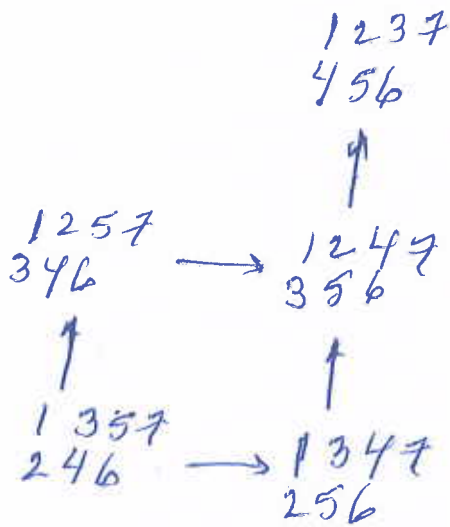 1237
456
1257
346
1247
356
1357
246
1347
256